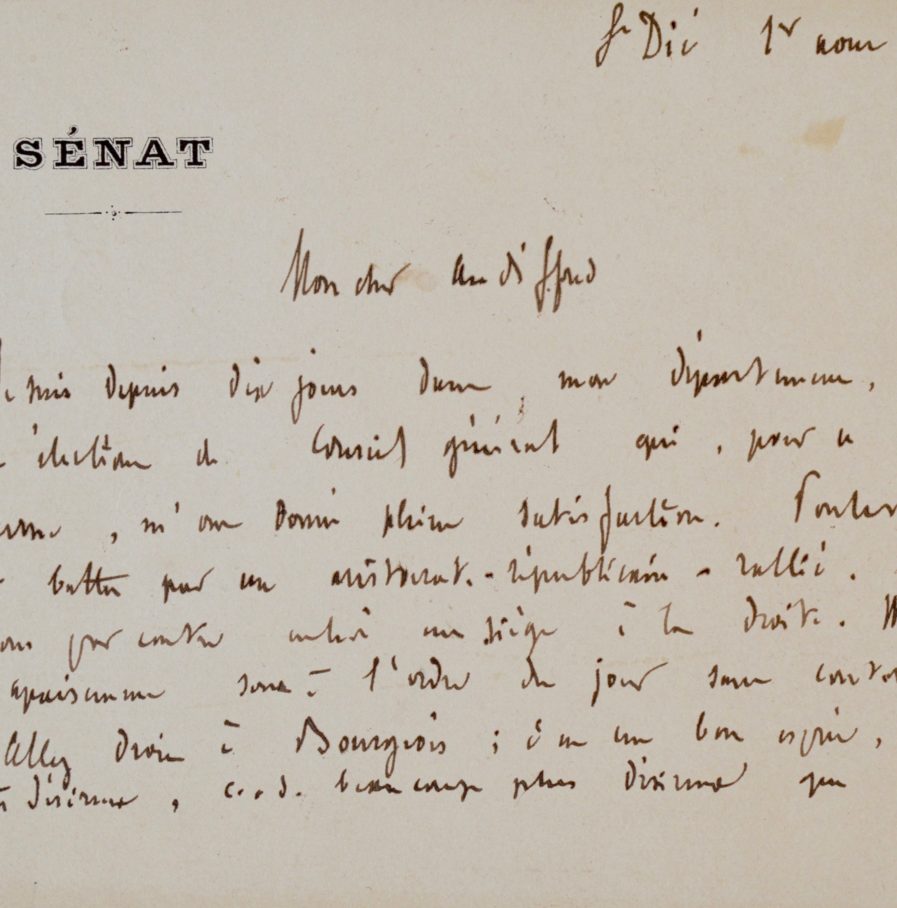 St Dié 1er nov
SÉNAT
Mon cher Audiffred
suis depuis dix jours dans mon département,
élection de Conseil général qui, pour
, m'ont donné pleine satisfaction.
battu par un aristocrate-républicain-rallié.
par contre enlevé un siège à la droite.
apaisement sont à l'ordre du jour sans
Allez droit à Bourgeois ; c'est un bon esprit,
, c.a.d. beaucoup plus que